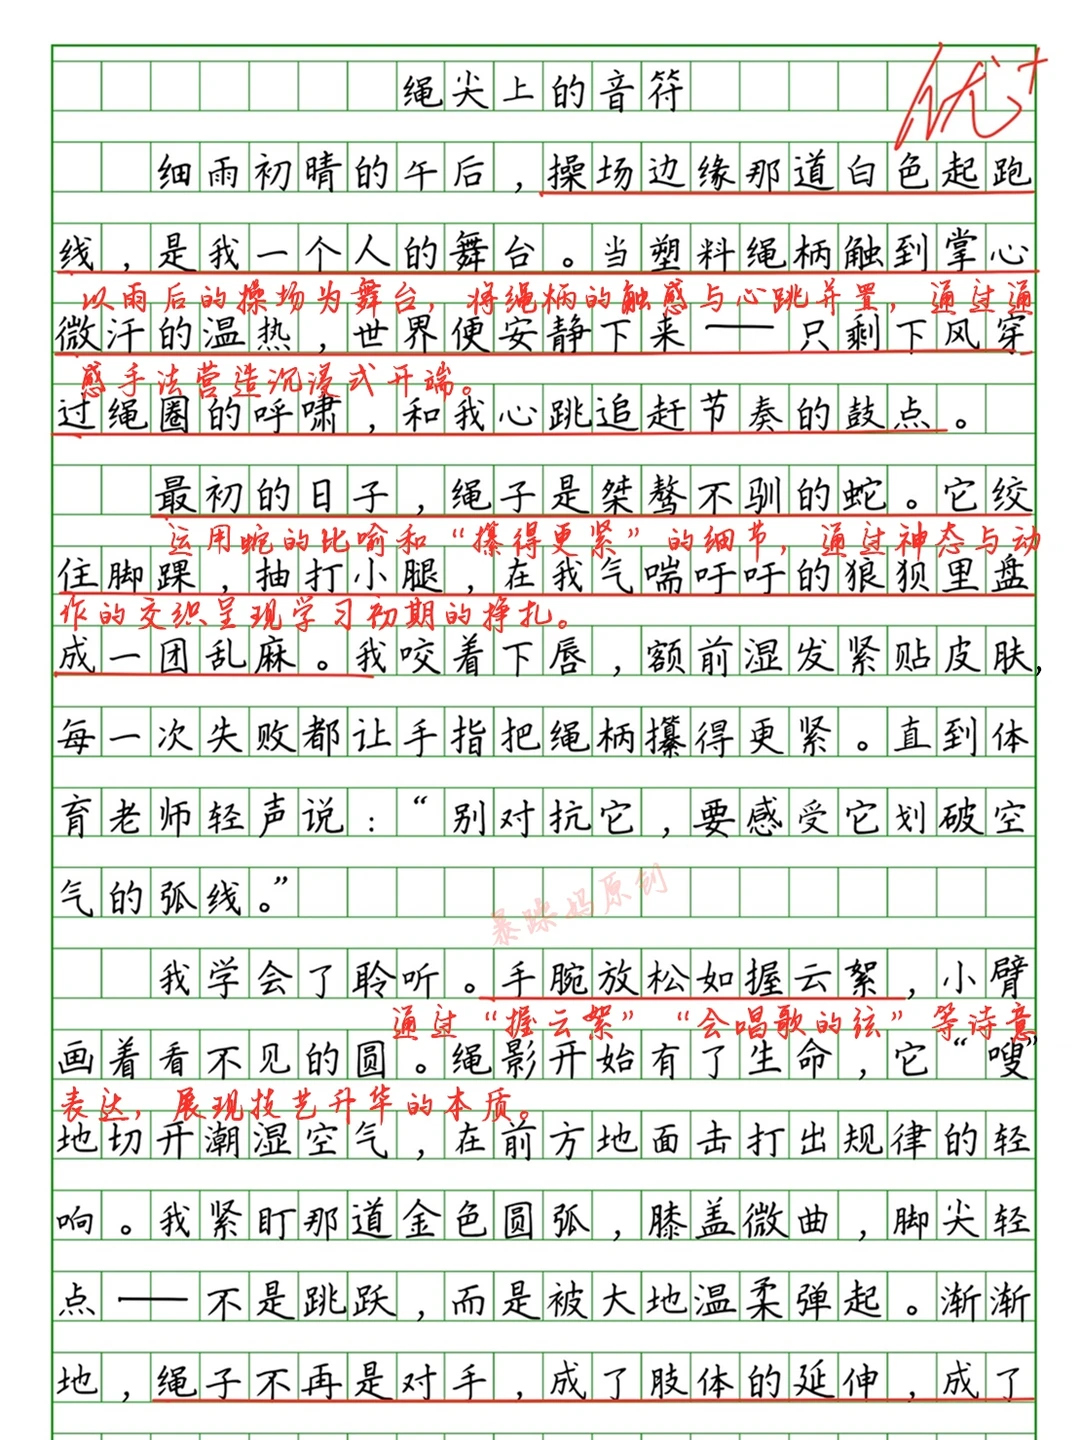 绳尖上的音符
优+
细雨初晴的午后，操场边缘那道白色起跑
线，是我一个人的舞台。当塑料绳柄触到掌心
以雨后的操场为舞台，将绳柄的触感与心跳并置，通过通
微汗的温热，世界便安静下来——只剩下风穿
感手法营造沉浸式开端。
过绳圈的呼啸，和我心跳追赶节奏的鼓点。
最初的日子，绳子是桀骜不驯的蛇。它绞
运用蛇的比喻和“攥得更紧”的细节，通过神态与动
住脚踝，抽打小腿，在我气喘吁吁的狼狈里盘
作的交织呈现学习初期的挣扎。
成一团乱麻。我咬着下唇，额前湿发紧贴皮肤，
每一次失败都让手指把绳柄攥得更紧。直到体
育老师轻声说：“别对抗它，要感受它划破空
气的弧线。”
暴躁妈原创
我学会了聆听。手腕放松如握云絮，小臂
通过“握云絮”“会唱歌的弦”等诗意
画着看不见的圆。绳影开始有了生命，它“嗖”
表达，展现技艺升华的本质。
地切开潮湿空气，在前方地面击打出规律的轻
响。我紧盯那道金色圆弧，膝盖微曲，脚尖轻
点——不是跳跃，而是被大地温柔弹起。渐渐
地，绳子不再是对手，成了肢体的延伸，成了